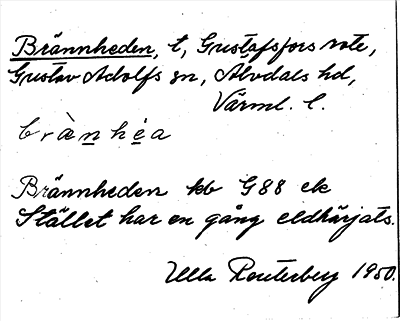 Brännheden, t, Gustafsfors rote,
Gustav Adolfs sn, Älvdals hd,
Värml. l.
brànhéa
Brännheden kb G88 ek
Stället har en gång eldhärjats.
Ulla Reuterberg 1950.